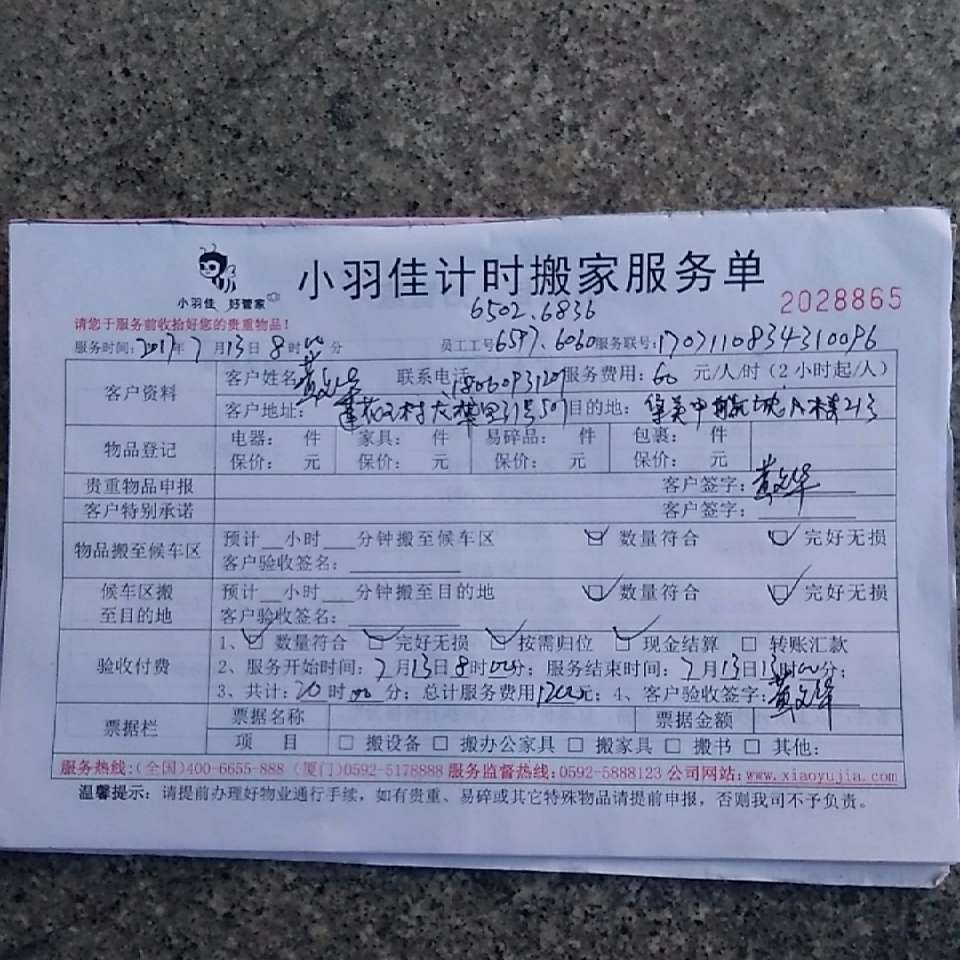 小羽佳 好管家
小羽佳计时搬家服务单
2028865
6502.6836
请您于服务前收拾好您的贵重物品!
服务时间:2017年7月13日8时00分 员工工号6597.6060服务联号:1707110834310096
客户资料 客户姓名 黄文华 联系电话 服务费用:60元/人/时(2小时起/人)
客户地址: 莲花五村 目的地:
物品登记 电器: 件 家具: 件 易碎品: 件 包裹: 件
保价: 元 保价: 元 保价: 元 保价: 元
贵重物品申报 客户签字:黄文华
客户特别承诺 客户签字:
物品搬至候车区 预计__小时___分钟搬至候车区 数量符合 完好无损
客户验收签名:
候车区搬至目的地 预计__小时___分钟搬至目的地 数量符合 完好无损
客户验收签名:
验收付费 1、数量符合 完好无损 按需归位 现金结算 转账汇款
2、服务开始时间:7月13日8时00分;服务结束时间:7月13日13时00分;
3、共计:20时00分;总计服务费用1200元;4、客户验收签字:黄文华
票据栏 票据名称 票据金额
项 目 □ 搬设备 □ 搬办公家具 □ 搬家具 □ 搬书 □ 其他:
服务热线:(全国)400-6655-888 (厦门)0592-5178888 服务监督热线:0592-5888123 公司网站:www.xiaoyujia.com
温馨提示:请提前办理好物业通行手续,如有贵重、易碎或其它特殊物品请提前申报,否则我司不予负责。